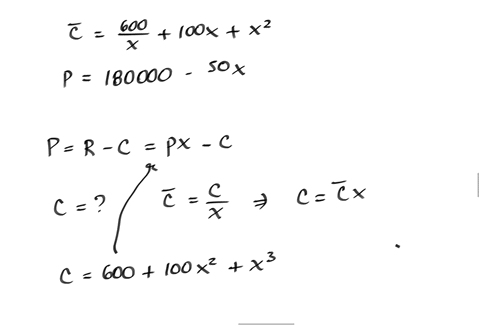 C̅ = 600/x + 100x + x²
P = 180000 - 50x
P = R - C = px - C
C = ? C̅ = C/x ⇒ C = C̅x
C = 600 + 100x² + x³